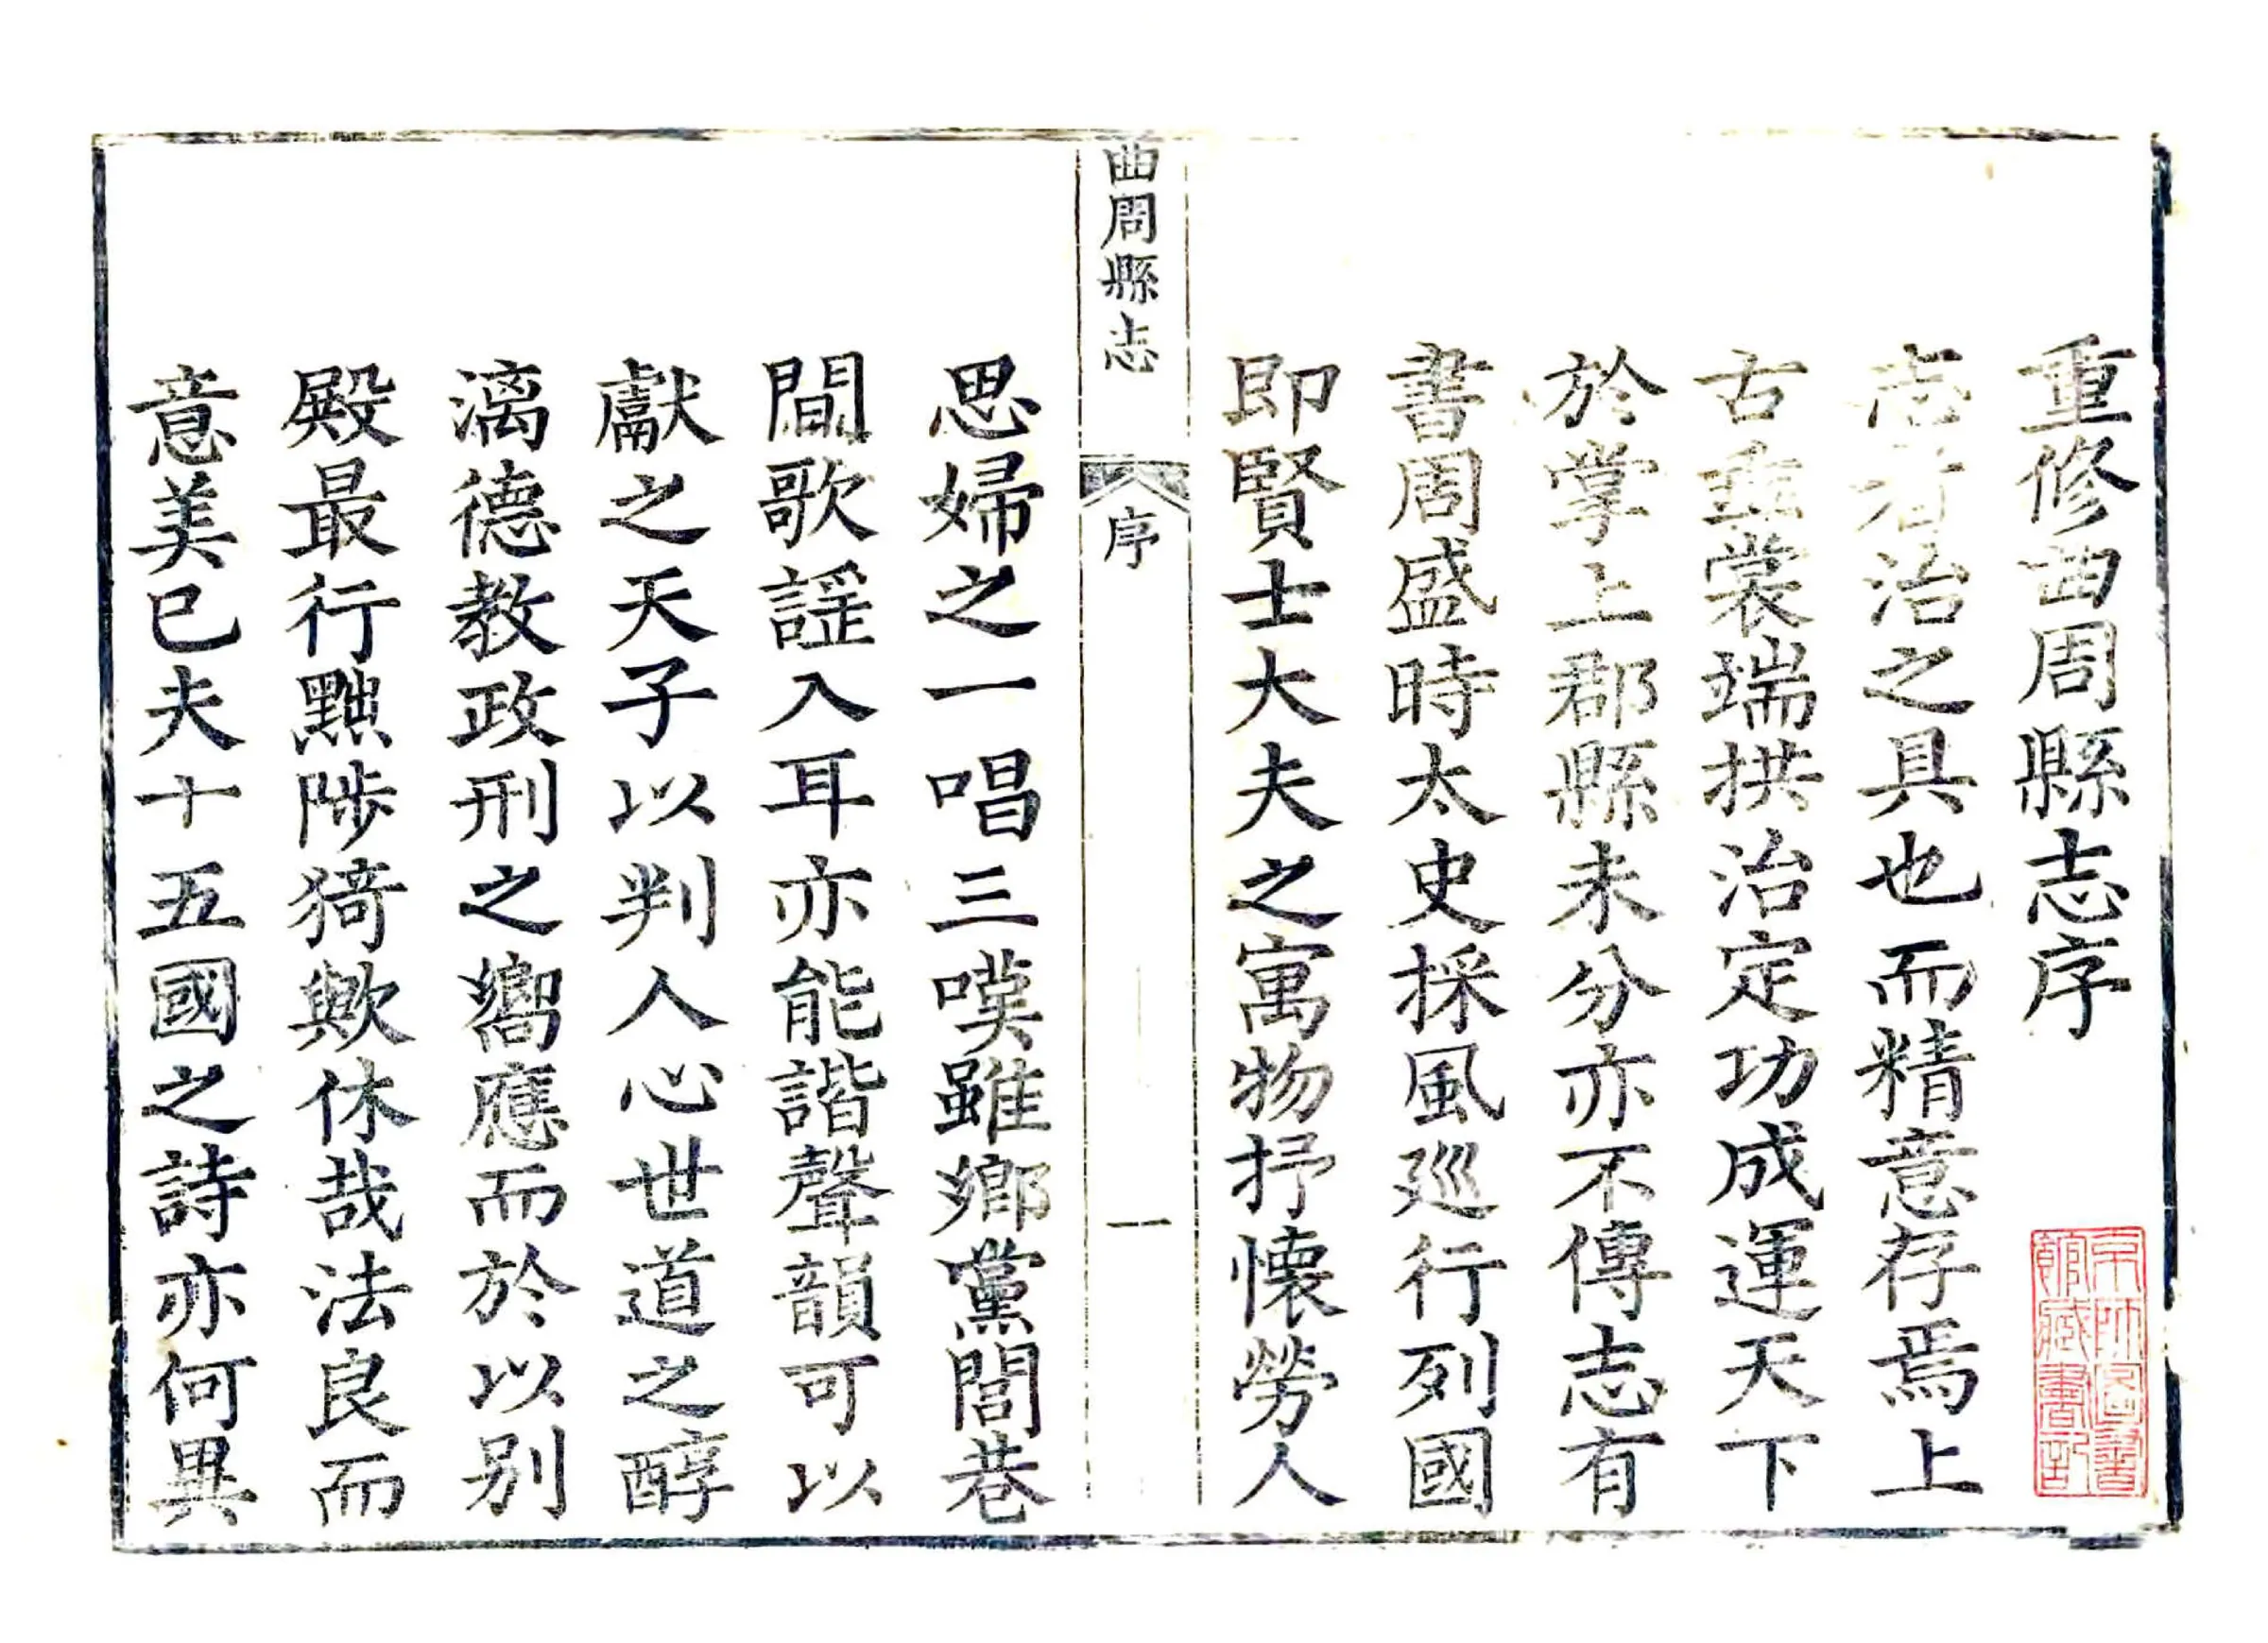 重修曲周縣志序
志者治之具也而精意存焉上
古垂裳端拱治定功成運天下
於掌上郡縣未分亦不傳志有
書周盛時太史採風廵行列國
即賢士大夫之寓物抒懷勞人
曲周縣志
序
一
思婦之一唱三嘆雖鄉黨閭巷
間歌謡入耳亦能諧聲韻可以
獻之天子以判人心世道之醇
漓德教政刑之嚮應而於以别
殿最行黜陟猗歟休哉法良而
意美已夫十五國之詩亦何異